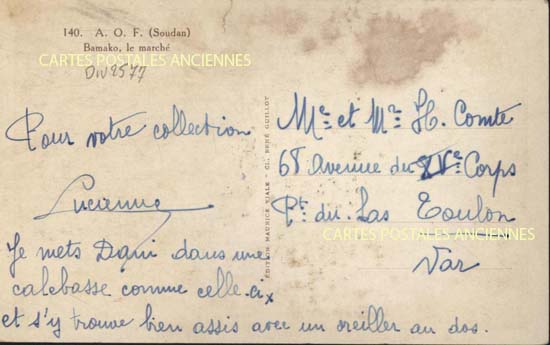 140. A. O. F. (Soudan)
Bamako, le marché
CARTES POSTALES ANCIENNES
Div 2577
Pour votre collection
Lucienne
Je mets Dani dans une
calebasse comme celle-ci x
et s'y trouve bien assis avec un oreiller au dos.
EDITION MAURICE VIALE - CL. RENÉ GUILLOT
Me et Mr H. Comte
68 Avenue du XVe Corps
Pt. du. Las Toulon
CARTES POSTALES ANCIENNES
Var